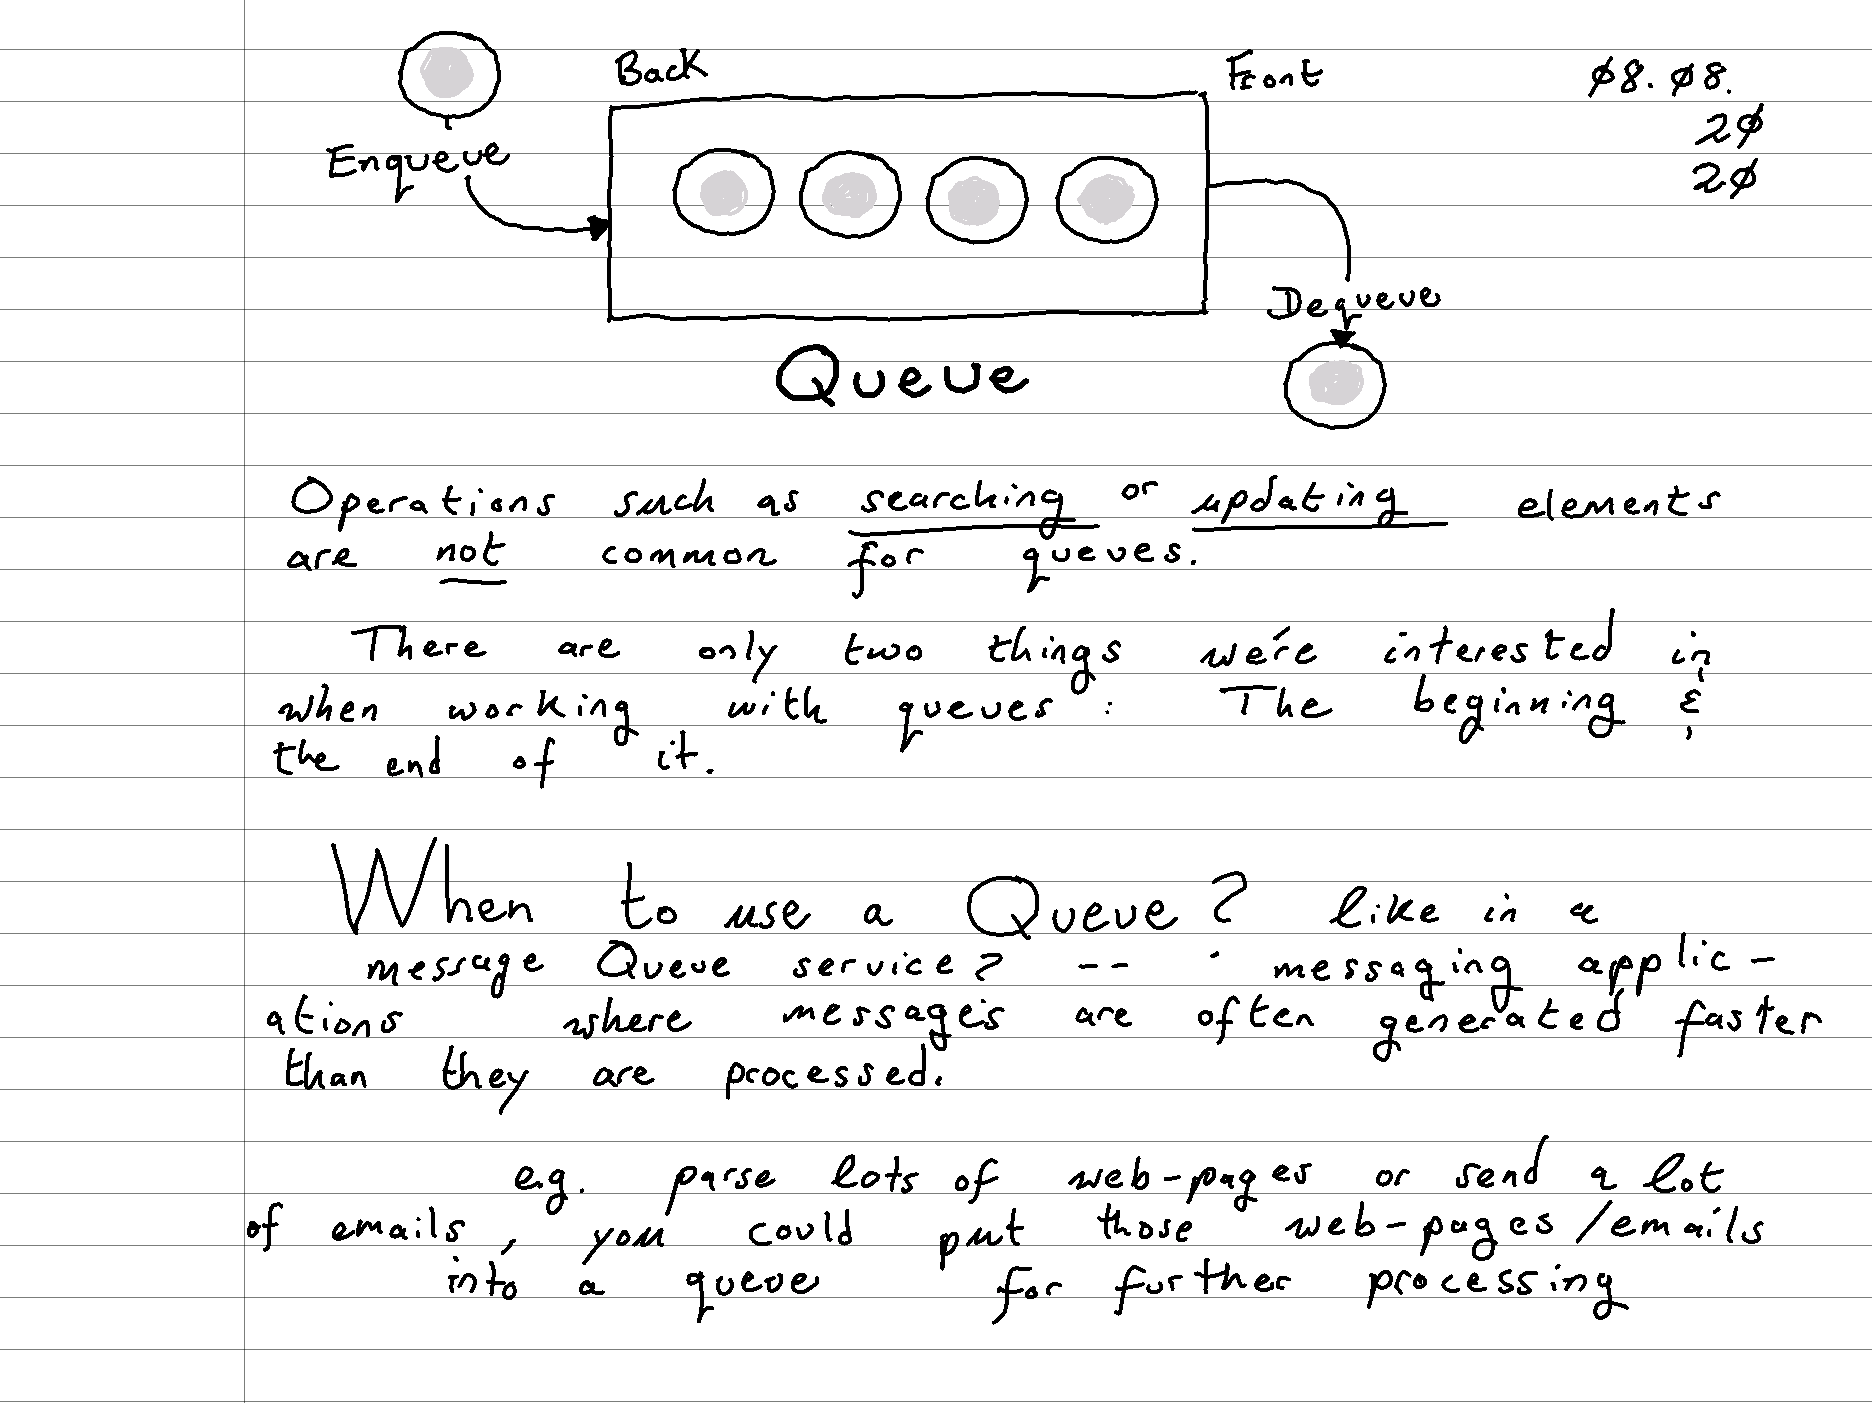 Back
Front
ø8. ø8.
2ø
2ø
Enqueue
Dequeue
Queue
Operations such as searching or updating elements
are not common for queues.
There are only two things we're interested in
when working with queues: The beginning &
the end of it.
When to use a Queue? like in a
message Queue service? -- · messaging applic-
ations where message's are often generated faster
than they are processed.
e.g. parse lots of web-pages or send a lot
of emails, you could put those web-pages/emails
into a queue for further processing